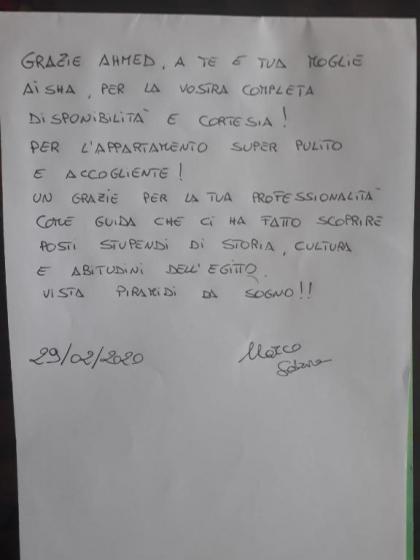 GRAZIE AHMED, A TE E TUA MOGLIE
AISHA, PER LA VOSTRA COMPLETA
DISPONIBILITÀ E CORTESIA!
PER L'APPARTAMENTO SUPER PULITO
E ACCOGLIENTE!
UN GRAZIE PER LA TUA PROFESSIONALITÀ
COME GUIDA CHE CI HA FATTO SCOPRIRE
POSTI STUPENDI DI STORIA, CULTURA
E ABITUDINI DELL'EGITTO.
VISTA PIRAMIDI DA SOGNO!!
29/02/2020 Marco